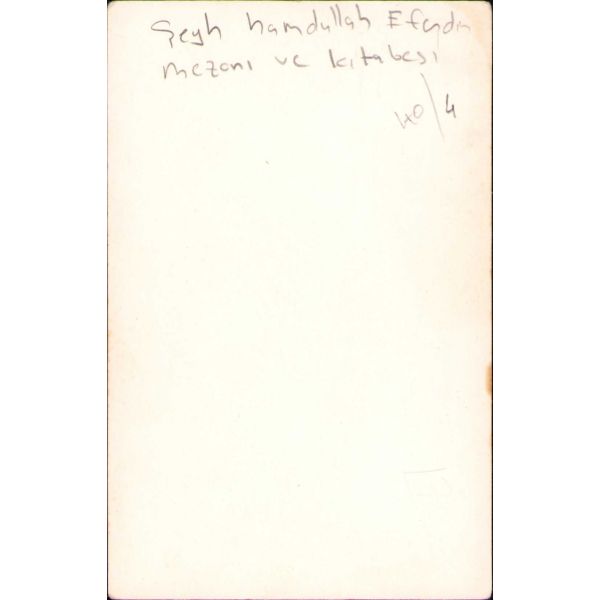 Şeyh Hamdullah Efendi
mezarı ve kitabesi
40/4